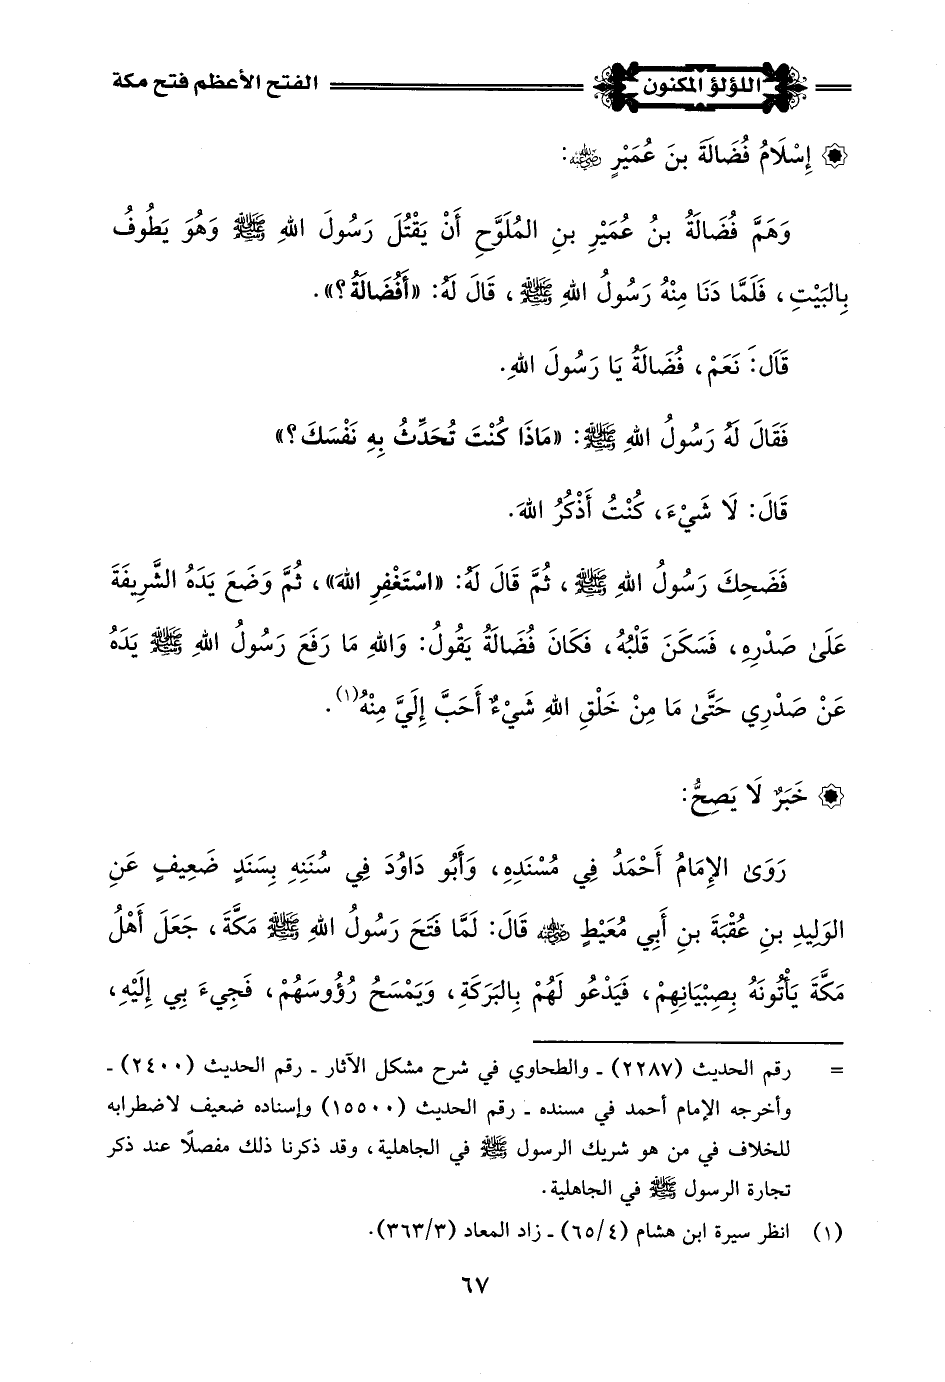 اللؤلؤ المكنون
الفتح الأعظم فتح مكة
إِسْلَامُ فُضَالَةَ بنَ عُمَيْرٍ رضي الله عنه:
وَهَمَّ فُضَالَةُ بنُ عُمَيْرِ بنِ المُلَوَّحِ أَنْ يَقْتُلَ رَسُولَ اللهِ ﷺ وَهُوَ يَطُوفُ
بِالبَيْتِ، فَلَمَّا دَنَا مِنْهُ رَسُولُ اللهِ ﷺ، قَالَ لَهُ: «أَفُضَالَةُ؟».
قَاَل: نَعَمْ، فُضَالَةُ يَا رَسُولَ اللهِ.
فَقَالَ لَهُ رَسُولُ اللهِ ﷺ: «مَاذَا كُنْتَ تُحَدِّثُ بِهِ نَفْسَكَ؟»
قَالَ: لَا شَيْءَ، كُنْتُ أَذْكُرُ اللهَ.
فَضَحِكَ رَسُولُ اللهِ ﷺ، ثُمَّ قَالَ لَهُ: «اسْتَغْفِرِ اللهَ»، ثُمَّ وَضَعَ يَدَهُ الشَّرِيفَةَ
عَلَىٰ صَدْرِهِ، فَسَكَنَ قَلْبُهُ، فَكَانَ فُضَالَةُ يَقُولُ: وَاللهِ مَا رَفَعَ رَسُولُ اللهِ ﷺ يَدَهُ
عَنْ صَدْرِي حَتَّىٰ مَا مِنْ خَلْقِ اللهِ شَيْءٌ أَحَبَّ إِلَيَّ مِنْهُ(١).
خَبَرٌ لَا يَصِحُّ:
رَوَىٰ الإِمَامُ أَحْمَدُ فِي مُسْنَدِهِ، وَأَبُو دَاوُدَ فِي سُنَنِهِ بِسَنَدٍ ضَعِيفٍ عَنِ
الوَلِيدِ بنِ عُقْبَةَ بنِ أَبِي مُعَيْطٍ رضي الله عنه قَالَ: لَمَّا فَتَحَ رَسُولُ اللهِ ﷺ مَكَّةَ، جَعَلَ أَهْلُ
مَكَّةَ يَأْتُونَهُ بِصِبْيَانِهِمْ، فَيَدْعُو لَهُمْ بِالبَرَكَةِ، وَيَمْسَحُ رُؤُوسَهُمْ، فَجِيءَ بِي إِلَيْهِ،
= رقم الحديث (٢٢٨٧) ـ والطحاوي في شرح مشكل الآثار ـ رقم الحديث (٢٤٠٠) ـ
وأخرجه الإمام أحمد في مسنده ـ رقم الحديث (١٥٥٠٠) وإسناده ضعيف لاضطرابه
للخلاف في من هو شريك الرسول ﷺ في الجاهلية، وقد ذكرنا ذلك مفصلًا عند ذكر
تجارة الرسول ﷺ في الجاهلية.
(١) انظر سيرة ابن هشام (٦٥/٤) ـ زاد المعاد (٣٦٣/٣).
٦٧